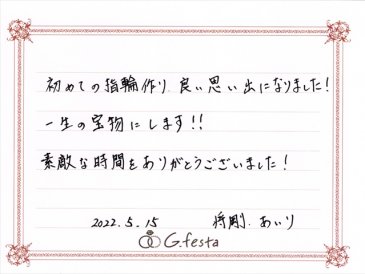 初めての指輪作り 良い思い出になりました!
一生の宝物にします!!
素敵な時間をありがとうございました!
2022.5.15 将剛.あいり
G.festa